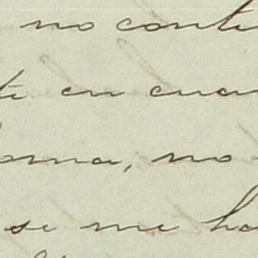 no conte
te en cuan
oma, no
se me ha